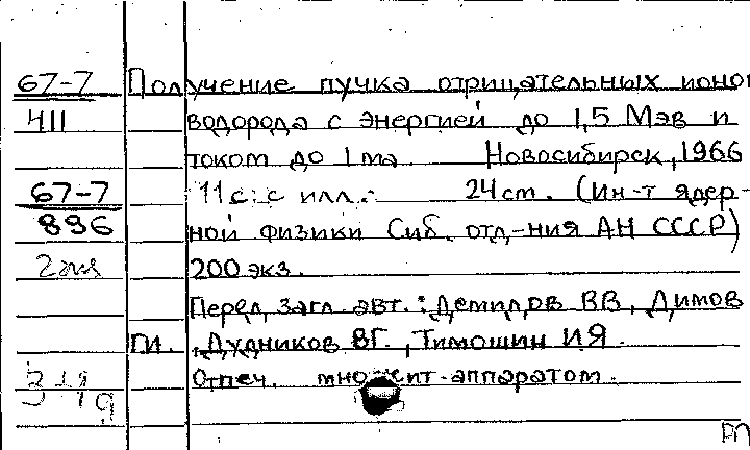 67-7 Получение пучка отрицательных ионов
411 водорода с энергией до 1,5 Мэв и
током до 1 ма. Новосибирск, 1966
67-7 11 с. с илл. 24 cm. (Ин-т ядер-
896 ной физики Сиб. отд-ния АН СССР)
200 экз.
Перед загл. авт.: Демидов ВВ, Димов
ГИ., Дудников ВГ., Тимошин ИЯ.
Отпеч. множит-аппаратом.